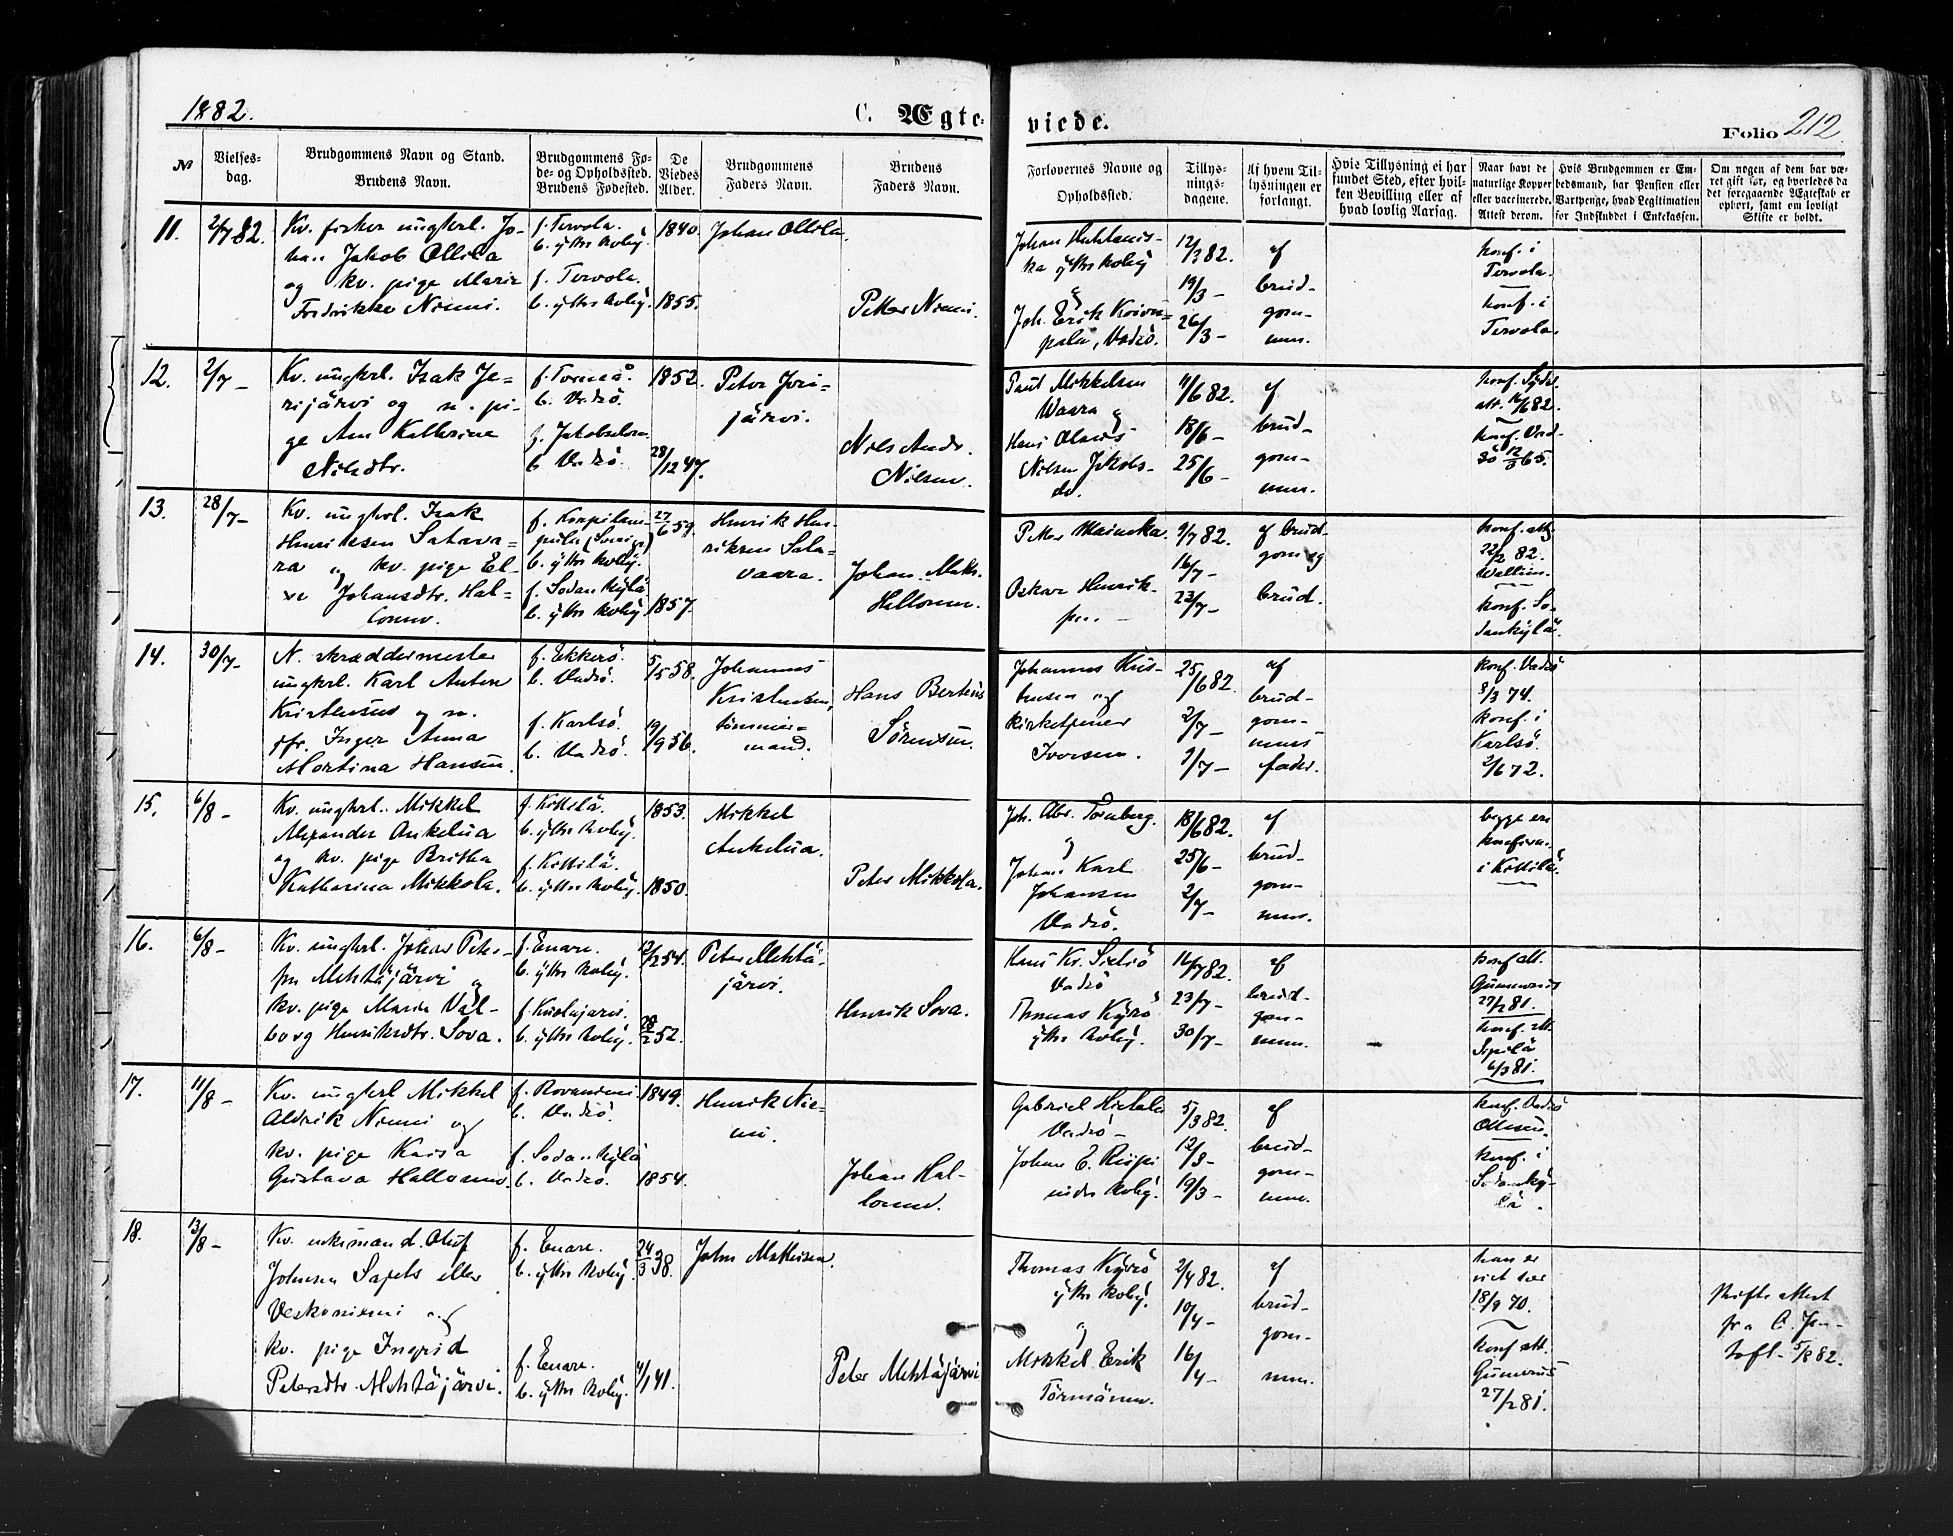 1882.
C. Ægte-
viede.
Folio 212
No
Vielses-
dag.
Brudgommens Navn og Stand.
Brudens Navn.
Brudgommens Fø-
de- og Opholdssted.
Brudens Fødested.
De
Viedes
Alder.
Brudgommens
Faders Navn.
Brudens
Faders Navn.
Forlovernes Navne og
Opholdssted.
Tillys-
nings-
dagene.
Af hvem Til-
lysningen er
forlangt.
Hvis Tillysning ei har
fundet Sted, efter hvil-
ken Bevilling eller af
hvad lovlig Aarsag.
Naar havt de
naturlige Kopper
eller vaccinerede.
Attest derom.
Hvis Brudgommen er Em-
bedsmand, har Pension eller
Vartpenge, hvad Legitimation
for Indskuddet i Enkekassen.
Om nogen af dem har væ-
ret gift før, og hvorledes da
det foregaaende Ægteskab er
ophørt, samt om lovligt
Skifte er holdt.
11.
2/7 82.
Kv. fisker ungkrl. Jo-
han Jakob Ollila
og kv. pige Marie
Fredrikke Niemi.
f. Tervola.
b. ytre kvby.
f. Tervola.
b. ytre kvby.
1840.
1855.
Johan Ollila.
Petter Niemi.
Johan
ka ytre kvby
&
Joh. Erik
Vadsö.
12/3 82.
19/3 -
26/3 -
af
brud-
gom-
men.
konf. i
Tervola.
konf. i
Tervola.
12.
2/7 -
Kv. ungkrl. Isak Je-
rijärvi og n. pi-
ge Ane Kathrine
Nilsdtr.
f. Torneå.
b. Vadsö.
f. Jakobselven.
b. Vadsö.
1852.
28/12 47.
Peter Jeri-
järvi.
Nils Andr.
Nilsen.
Paul Mikkelsen
Waara &
Hans Olaus
Nilsen Jakobs-
elv.
11/6 82.
18/6 -
25/6 -
af
brud-
gom-
men.
konf.
att. 16/6 82.
konf. Vad-
sö 65.
13.
28/7 -
Kv. ungkrl. Isak
Henriksen Satava-
ra & kv. pige El-
se Johansdtr. Hal-
lonen.
f. Korpilom-
polo (Sverige)
b. ytre kvby.
f. Sodankylä
b. ytre kvby.
27/6 59.
1857.
Henrik Hen-
riksen Sata-
vaara.
Johan Matts.
Hallonen.
Petter Mainoka
Oskar Henrik-
sen. -
9/7 82.
16/7 -
23/7 -
af brud-
gom og
brud.
konf. att.
22/2 82.
Wallin.
konf. So-
dankylä.
14.
30/7 -
N. skræddermester
ungkrl. Karl Anton
Kristensen og n.
pfr. Inger Anna
Martina Hansen.
f. Ekkerö.
b. Vadsö.
f. Karlsö.
b. Vadsö.
5/5 58.
19/9 56.
Johannes
Kristensen,
tömmer-
mand.
Hans Bertheus
Sörensen.
Johannes Kris-
tensen og
kirketjener
Iversen.
25/6 82.
2/7 -
9/7 -
af
brud-
gom-
mens
fader.
konf. Vadsö
8/3 74.
konf. i
Karlsö.
2/6 72.
15.
6/8 -
Kv. ungkrl. Mikkel
Alexander Ankelua
og kv. pige Britha
Katharina Mikkola.
f. Kittilä.
b. ytre kvby.
f. Kittilä.
b. ytre kvby.
1853.
1850.
Mikkel
Ankelua.
Peter Mikkola.
Joh. Abr. Tornberg.
&
Johan Karl
Johansen
Vadsö.
18/6 82.
25/6 -
2/7 -
af
brud-
gom-
men.
begge ere
konfirm.
i Kittilä.
16.
6/8 -
Kv. ungkrl. Johan Peter-
sen Mehtäjärvi &
kv. pige Maria Val-
borg Henriksdtr. Sova.
f. Enare.
b. ytre kvby.
f. Kuolajarvi.
b. ytre kvby.
12/2 54.
28/2 52.
Peter Mehtä-
järvi.
Henrik Sova.
Hans Kr.
Vadsö
Thomas Kyrö
ytre kvby.
16/7 82.
23/7 -
30/7 -
af
brud-
gom-
men.
konf. att.
Gummerus
27/2 81.
konf. att.
Sipilä
6/3 81.
17.
11/8 -
Kv. ungkrl Mikkel
Aldrik Niemi og
kv. pige Kaisa
Gustava Hallonen.
f. Rovaniemi
b. Vadsö.
f. Sodankylä
b. Vadsö.
1849.
1854.
Henrik Nie-
mi.
Johan Hal-
lonen.
Gabriel Hietala
Vadsö -
Johan E. Riipi
indre kvby.
5/3 82.
12/3 -
19/3 -
af
brud-
gom-
men.
konf. Vadsö
Ollesen.
konf. i
Sodanky-
lä.
18.
13/8 -
Kv. enkemand Oluf
Johnsen Sajets eller
Veskoniemi og
kv. pige Ingrid
Petersdtr. Mehtäjärvi.
f. Enare.
b. ytre kvby.
f. Enare.
b. ytre kvby.
24/3 38.
4/1 41.
John Mathisen.
Peter Mehtäjärvi
Thomas Kyrö
ytre kvby.
&
Mikkel Erik
Törmänen.
2/4 82.
10/4 -
16/4 -
af
brud-
gom-
men.
han er
viet her
18/9 70.
konf. att.
Gumerus
27/2 81.
Skifte attest
fra
5/8 82.